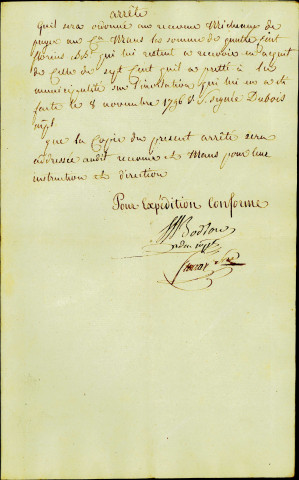 arrête
Qu'il sera ordonné au receveur Michaux de
payer au Cn Mans la somme de quatre cent
florins qui lui restent a recevoir en acquit
de celle de sept cent qu'il a pretté a la
municipalité sur l'invitation qui lui en a eté
faite le 8 novembre 1796 V. S. signée Dubois
que la Copie du present arrêté sera
adressée audit receveur et Mans pour leur
instruction et direction
Pour Expédition Conforme